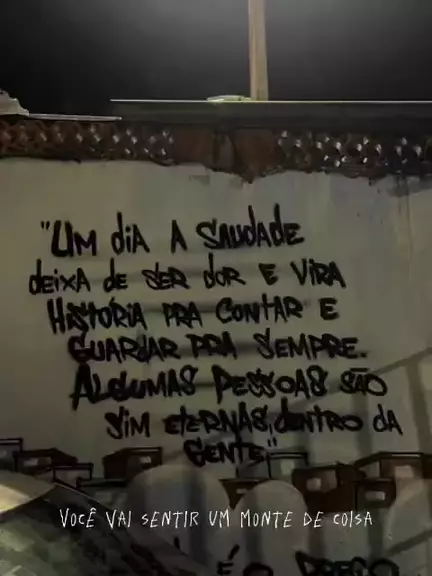 "UM DIA A SAUDADE
DEIXA DE SER DOR E VIRA
HISTÓRIA PRA CONTAR E
GUARDAR PRA SEMPRE.
ALGUMAS PESSOAS SÃO
SIM ETERNAS, DENTRO DA
GENTE."
VOCÊ VAI SENTIR UM MONTE DE COISA
É O PREÇO